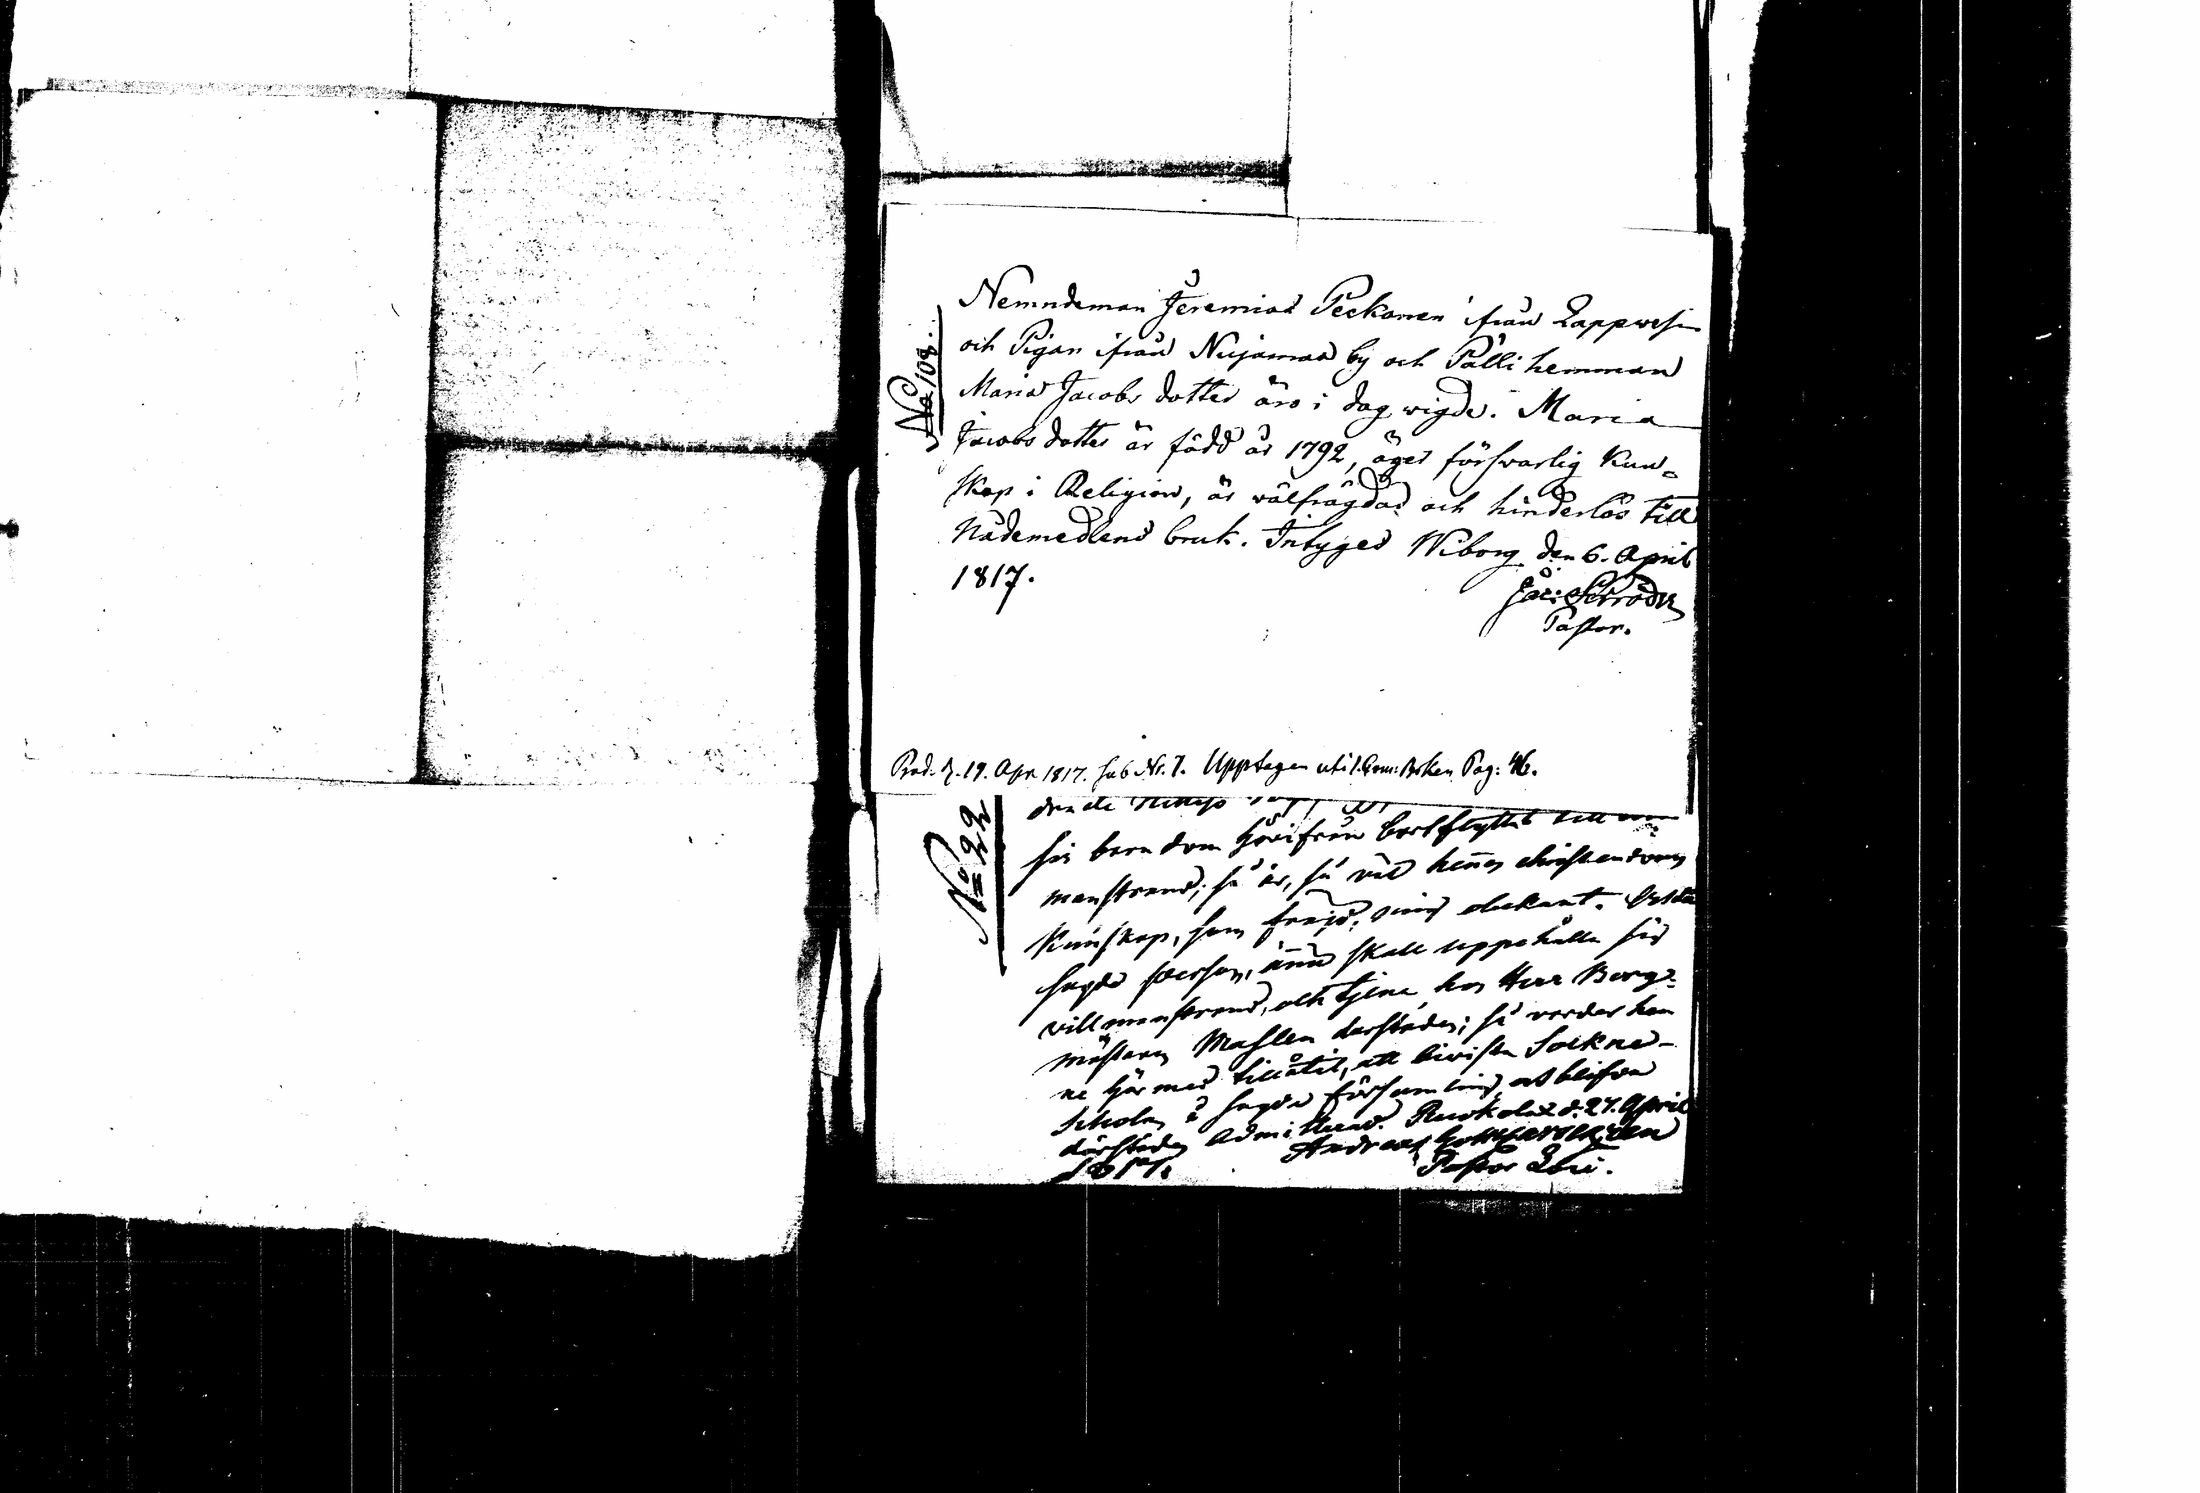 No 108.
Nemndeman Jeremias Peckonen ifrån Lappvesi
och Pigan ifrån Nuijamaa by och Pälli hemman
Maria Jacobs dotter äro i dag vigde. Maria
Jacobs dotter är född år 1792, äger försvarlig Kun-
skap i Religion, är välfrägdad och hinderlös till
Nådemedlens bruk. Intygas Wiborg den 6. April
1817.
Pastor.
Prod. d. 19. Apr 1817. sub Nr. 7. Upptagen uti Boken Pag: 46.
No 22
sin barndom härifrån bortflyttat till
manstrand; så är, så väl hennes christendoms
Kunskap, som frejd,
sagde person, ännu skall uppehålla sig
villmanstrand, och tjena hos Herr Borg-
mästaren därstädes; så varder hen
ne härmed tillåtit, att bivista Sockne-
Scholan å sagde församling, och blifva
därstädes admitterad. Ruokolax d. 27. April
1817.
Andreas
Pastor Loci.